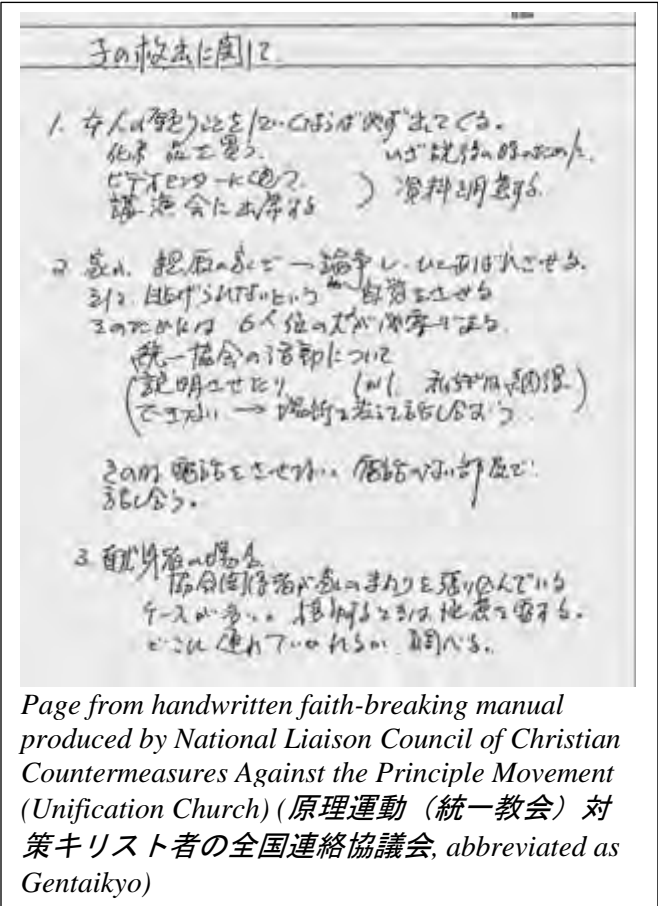 子の救出に関して
1. 本人の願うことをしていくならば必ず出てくる。
化粧品を買う。 いざ説得の時のために、
ビデオセンターに通う。 ) 資料を用意する
講演会に出席する
2. 論争し、ひとあばれさせる。
逃げられないという 自覚をさせる
そのためには 6人位の犬が必要
統一協会の活動について
説明させたり
できない → 場所を 話し合おう
その時 電話をさせない。電話のない部屋で
話し合う。
3. の場合
協会関係者が家のまわりを張り込んでいる
ケースが多い。 するときは 要する。
どこに連れていかれるか 調べる。
Page from handwritten faith-breaking manual
produced by National Liaison Council of Christian
Countermeasures Against the Principle Movement
(Unification Church) (原理運動（統一教会）対
策キリスト者の全国連絡協議会, abbreviated as
Gentaikyo)